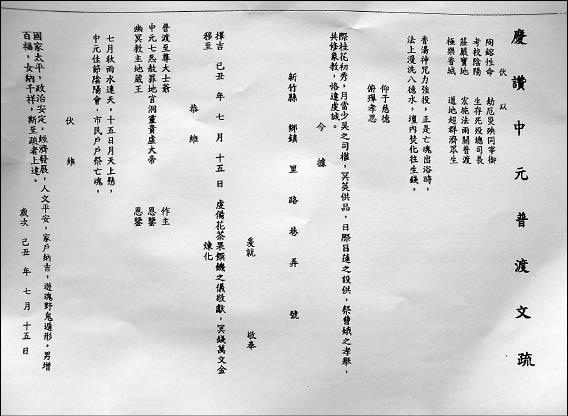 慶讚中元普渡文疏
伏以
陶鎔性命　劫厄災殃同宰御
考校陰陽　生存死歿總司長
莊嚴寶地　宏施法雨開普渡
極樂普城　道地超群濟眾生
香湯神咒力強役，正是亡魂出浴時，
法上漫洗八德水，壇內焚化往生錢。
仰于慈德
俯殫孝思
際桂花初秀，月當少昊之司權，冥英供品，日際昌蓮之設供，祭曹娥之孝舉，
共修象教，恪遵虔城。
今據
新竹縣　鄉鎮　里　路　巷　弄　號
爰就　敬奉
擇吉　己丑　年　七　月　十五　日　虔備花茶果饌饑之儀敬獻，冥錢萬文金
移至　煉化
恭維
普渡至尊大士爺　作主
中元七炁赦罪地官洞靈貴虛大帝　恩鑒
幽冥教主地藏王　恩鑒
七月秋雨水連天，十五日月天上懸，
中元佳節陰陽會，市民戶戶祭亡魂，
伏維
國家太平，政治安定，經濟發展，人文平安，家戶納吉，遊魂野鬼遁形，男增
百福，女納千祥，斯至疏者上達。
歲次　己丑　年　七月　十五　日